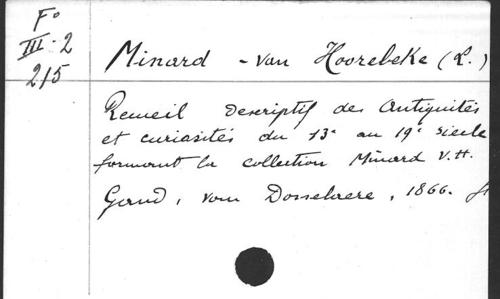 F°
III-2
215
Minard - van Hoorebeke (L.)
Recueil descriptif des Antiquités
et curiosités du 13e au 19e siècle
formant la collection Minard v.H.
Gand, van Dosselaere, 1866.